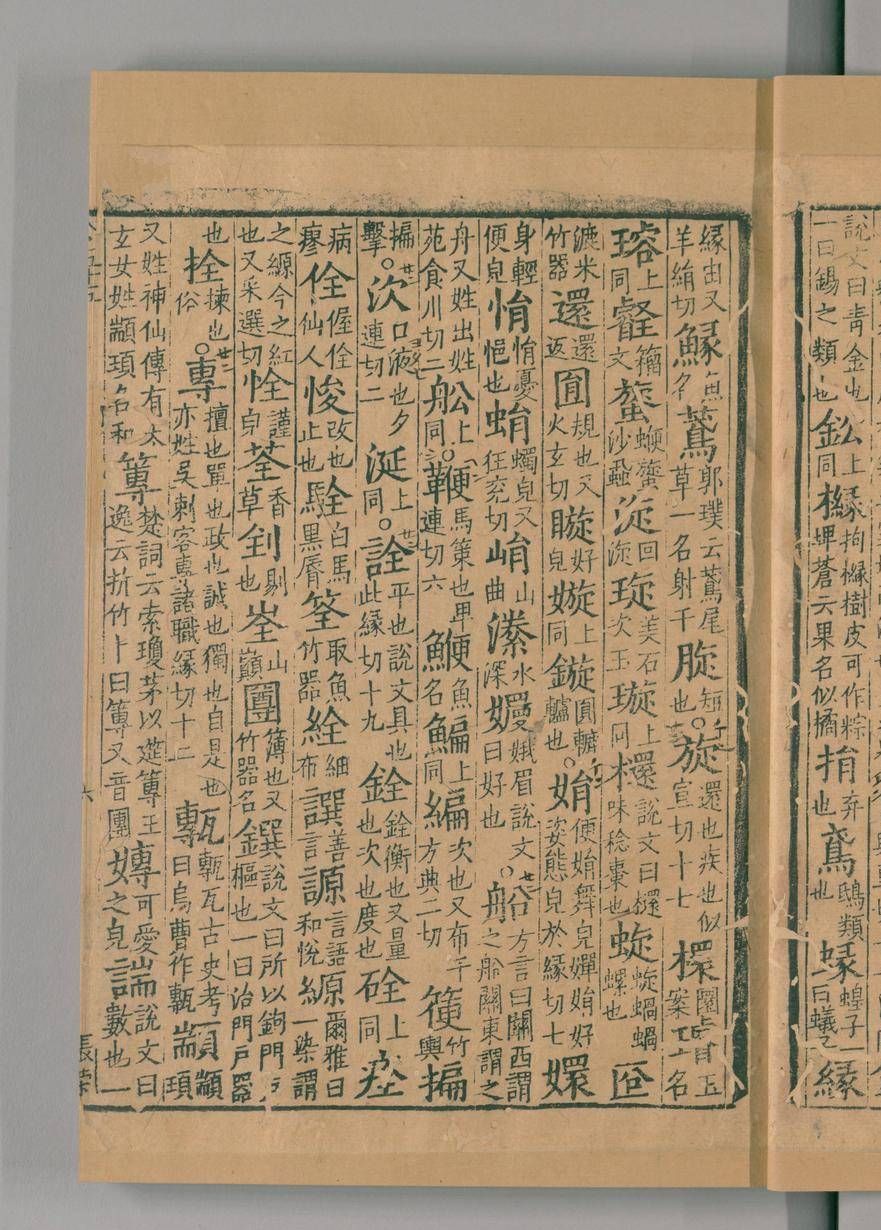 說文曰青金也一曰錫之類也鈆上同櫞枸櫞樹皮可作粽埤蒼云果名似橘捐弃也鳶鴟類也蝝蝗子一曰蟻子緣
緣由又羊絹切魚名郭璞云鳶尾草一名射干短也○旋還也疾也似宣切十七檈圜案名
上同籀文沙蝨淀回淀琁美石次玉璇上同檈說文曰檈味稔棗也蜁蜁蝸蝸螺也
漉米竹器還還返圓規也又火玄切䁢好皃嫙上同鏇圓轆轤也○娟便娟舞皃嬋娟好姿態皃於緣切七嬛
身輕便皃悁悁憂悒也蜎蠋皃又狂兖切山曲水深嬽娥眉說文曰好也○船方言曰關西謂之船關東謂之
舟又姓出姓苑食川切二舩上同○鞭馬策也卑連切六鯾魚名鯿上同編次也又布千方典二切箯竹輿揙
揙擊○㳄口液也夕連切二涎上同○詮平也說文具也此緣切十九銓銓衡也又量也次也度也硂上同痊
病瘳佺偓佺仙人悛改也止也駩白馬黑脣筌取魚竹器絟細布譔善言謜言語和恱縓爾雅曰一染謂
之縓今之紅也又采選切恮謹皃荃香草剶剔也峑山巔圌簿也又竹器名鐉說文曰所以鉤門戶樞也一曰治門戶器
也拴揀也俗○專擅也單也政也誠也獨也自是也亦姓吳刺客專諸職緣切十二甎甎瓦古史考曰烏曹作甎顓頊
又姓神仙傳有太玄女姓顓頊名和篿楚詞云索瓊茅以筳篿王逸云折竹卜曰篿又音團嫥可愛之皃諯說文曰數也一